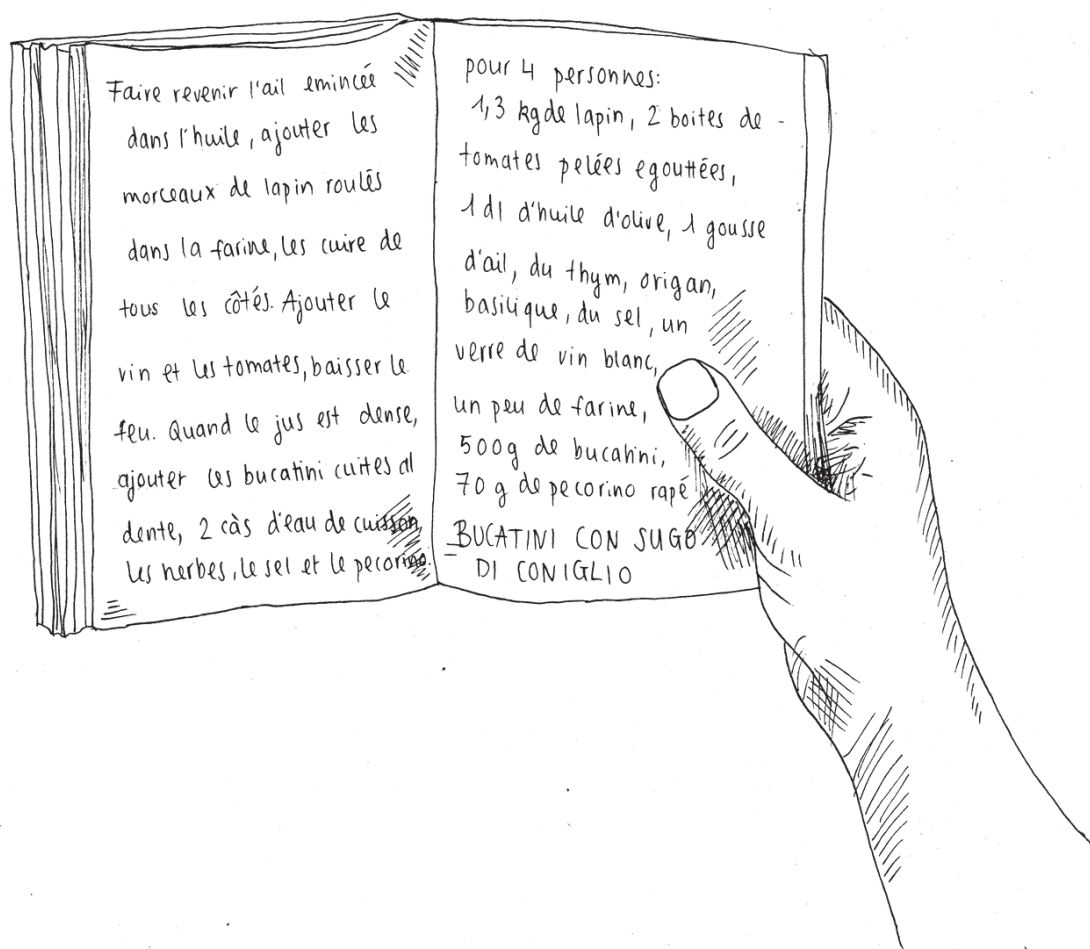 Faire revenir l'ail emincée
dans l'huile, ajouter les
morceaux de lapin roulés
dans la farine, les cuire de
tous les côtés. Ajouter le
vin et les tomates, baisser le
feu. Quand le jus est dense,
ajouter les bucatini cuites al
dente, 2 càs d'eau de cuisson,
les herbes, le sel et le pecorino.
pour 4 personnes:
1,3 kg de lapin, 2 boites de -
tomates pelées egouttées,
1 dl d'huile d'olive, 1 gousse
d'ail, du thym, origan,
basilique, du sel, un
verre de vin blanc,
un peu de farine,
500g de bucatini,
70 g de pecorino rapé
BUCATINI CON SUGO
DI CONIGLIO